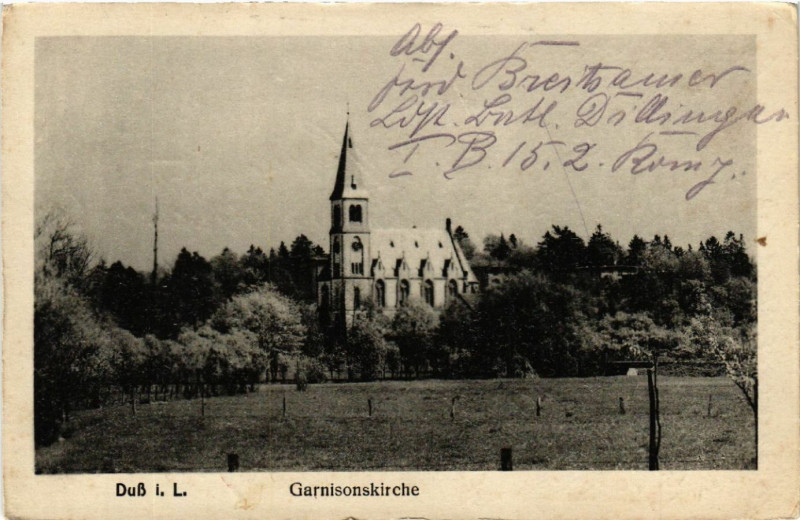 Abs.
Ford Breitsamer
Ldst. Batl. Dillingen
I. B. 15. 2. Komp.
Duß i. L.
Garnisonskirche